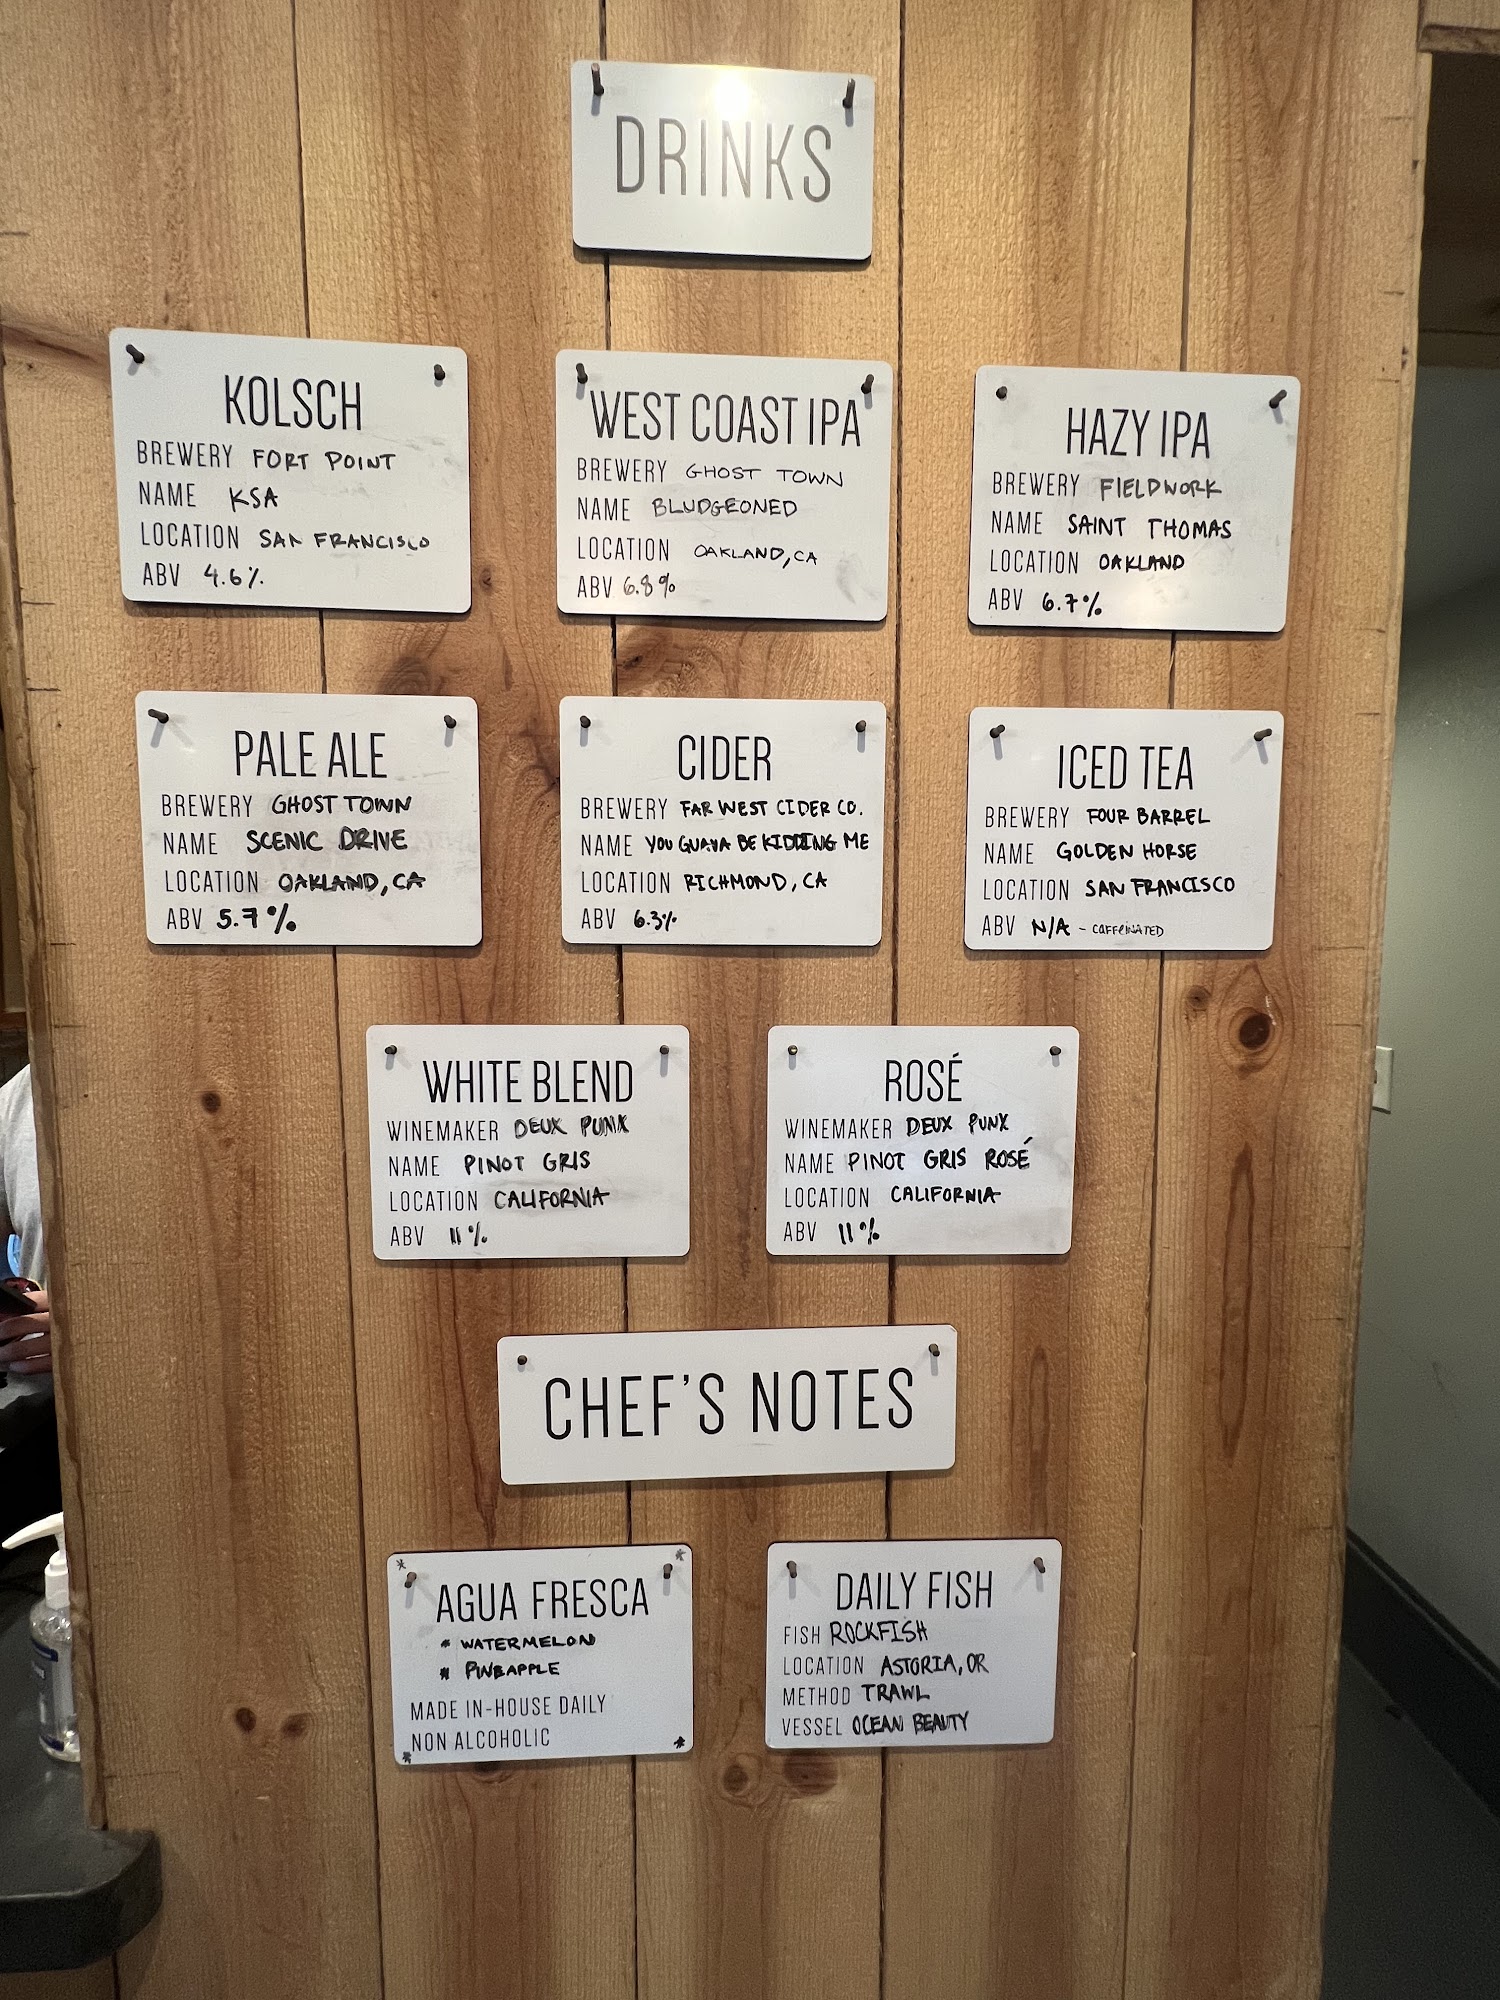 DRINKS
KOLSCH
BREWERY FORT POINT
NAME KSA
LOCATION SAN FRANCISCO
ABV 4.6%
WEST COAST IPA
BREWERY GHOST TOWN
NAME BLUDGEONED
LOCATION OAKLAND, CA
ABV 6.8%
HAZY IPA
BREWERY FIELDWORK
NAME SAINT THOMAS
LOCATION OAKLAND
ABV 6.7%
PALE ALE
BREWERY GHOST TOWN
NAME SCENIC DRIVE
LOCATION OAKLAND, CA
ABV 5.7%
CIDER
BREWERY FAR WEST CIDER CO.
NAME YOU GUAVA BE KIDDING ME
LOCATION RICHMOND, CA
ABV 6.3%
ICED TEA
BREWERY FOUR BARREL
NAME GOLDEN HORSE
LOCATION SAN FRANCISCO
ABV N/A - CAFFEINATED
WHITE BLEND
WINEMAKER DEUX PUNX
NAME PINOT GRIS
LOCATION CALIFORNIA
ABV 11%
ROSÉ
WINEMAKER DEUX PUNX
NAME PINOT GRIS ROSÉ
LOCATION CALIFORNIA
ABV 11%
CHEF'S NOTES
AGUA FRESCA
* WATERMELON
* PINEAPPLE
MADE IN-HOUSE DAILY
NON ALCOHOLIC
DAILY FISH
FISH ROCKFISH
LOCATION ASTORIA, OR
METHOD TRAWL
VESSEL OCEAN BEAUTY